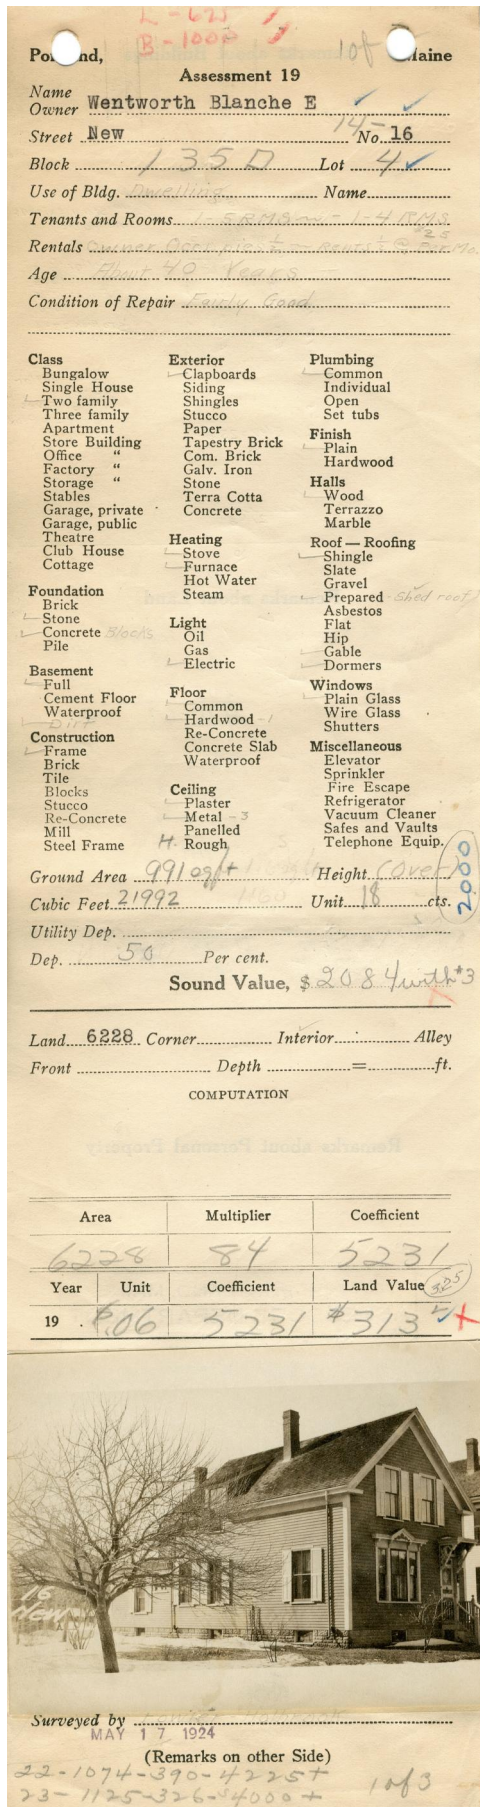 L - 625
B - 1000
1 of
Portland, Maine
Assessment 19
Name
Owner Wentworth Blanche E
Street New 14- No. 16
Block 135 D Lot 4
Use of Bldg. Dwelling Name
Tenants and Rooms 1-5 RMS - 1-4 RMS
$25
Rentals Owner Occupies ½ - Rents ½ @ Per Mo.
Age About 40 Years
Condition of Repair Fairly Good
Class
Bungalow
Single House
Two family
Three family
Apartment
Store Building
Office "
Factory "
Storage "
Stables
Garage, private
Garage, public
Theatre
Club House
Cottage
Foundation
Brick
Stone
Concrete Blocks
Pile
Basement
Full
Cement Floor
Waterproof
Dirt
Construction
Frame
Brick
Tile
Blocks
Stucco
Re-Concrete
Mill
Steel Frame
Exterior
Clapboards
Siding
Shingles
Stucco
Paper
Tapestry Brick
Com. Brick
Galv. Iron
Stone
Terra Cotta
Concrete
Heating
Stove
Furnace
Hot Water
Steam
Light
Oil
Gas
Electric
Floor
Common
Hardwood - 1
Re-Concrete
Concrete Slab
Waterproof
Ceiling
Plaster
Metal - 3
Panelled
H. Rough
Plumbing
Common
Individual
Open
Set tubs
Finish
Plain
Hardwood
Halls
Wood
Terrazzo
Marble
Roof — Roofing
Shingle
Slate
Gravel
Prepared - Shed roof
Asbestos
Flat
Hip
Gable
Dormers
Windows
Plain Glass
Wire Glass
Shutters
Miscellaneous
Elevator
Sprinkler
Fire Escape
Refrigerator
Vacuum Cleaner
Safes and Vaults
Telephone Equip.
2000
Ground Area 991 sqft Height (Over)
Cubic Feet 21992 Unit 18 cts.
Utility Dep.
Dep. 50 Per cent.
Sound Value, $ 2084 with #3
Land 6228 Corner Interior Alley
Front Depth = ft.
COMPUTATION
Area Multiplier Coefficient
6228 84 5231
Year Unit Coefficient Land Value 325
19 $.06 5231 $313
16
New
Surveyed by
MAY 17 1924
(Remarks on other Side)
22-1074-390-4225+
23-1125-326-$4000+
1 of 3